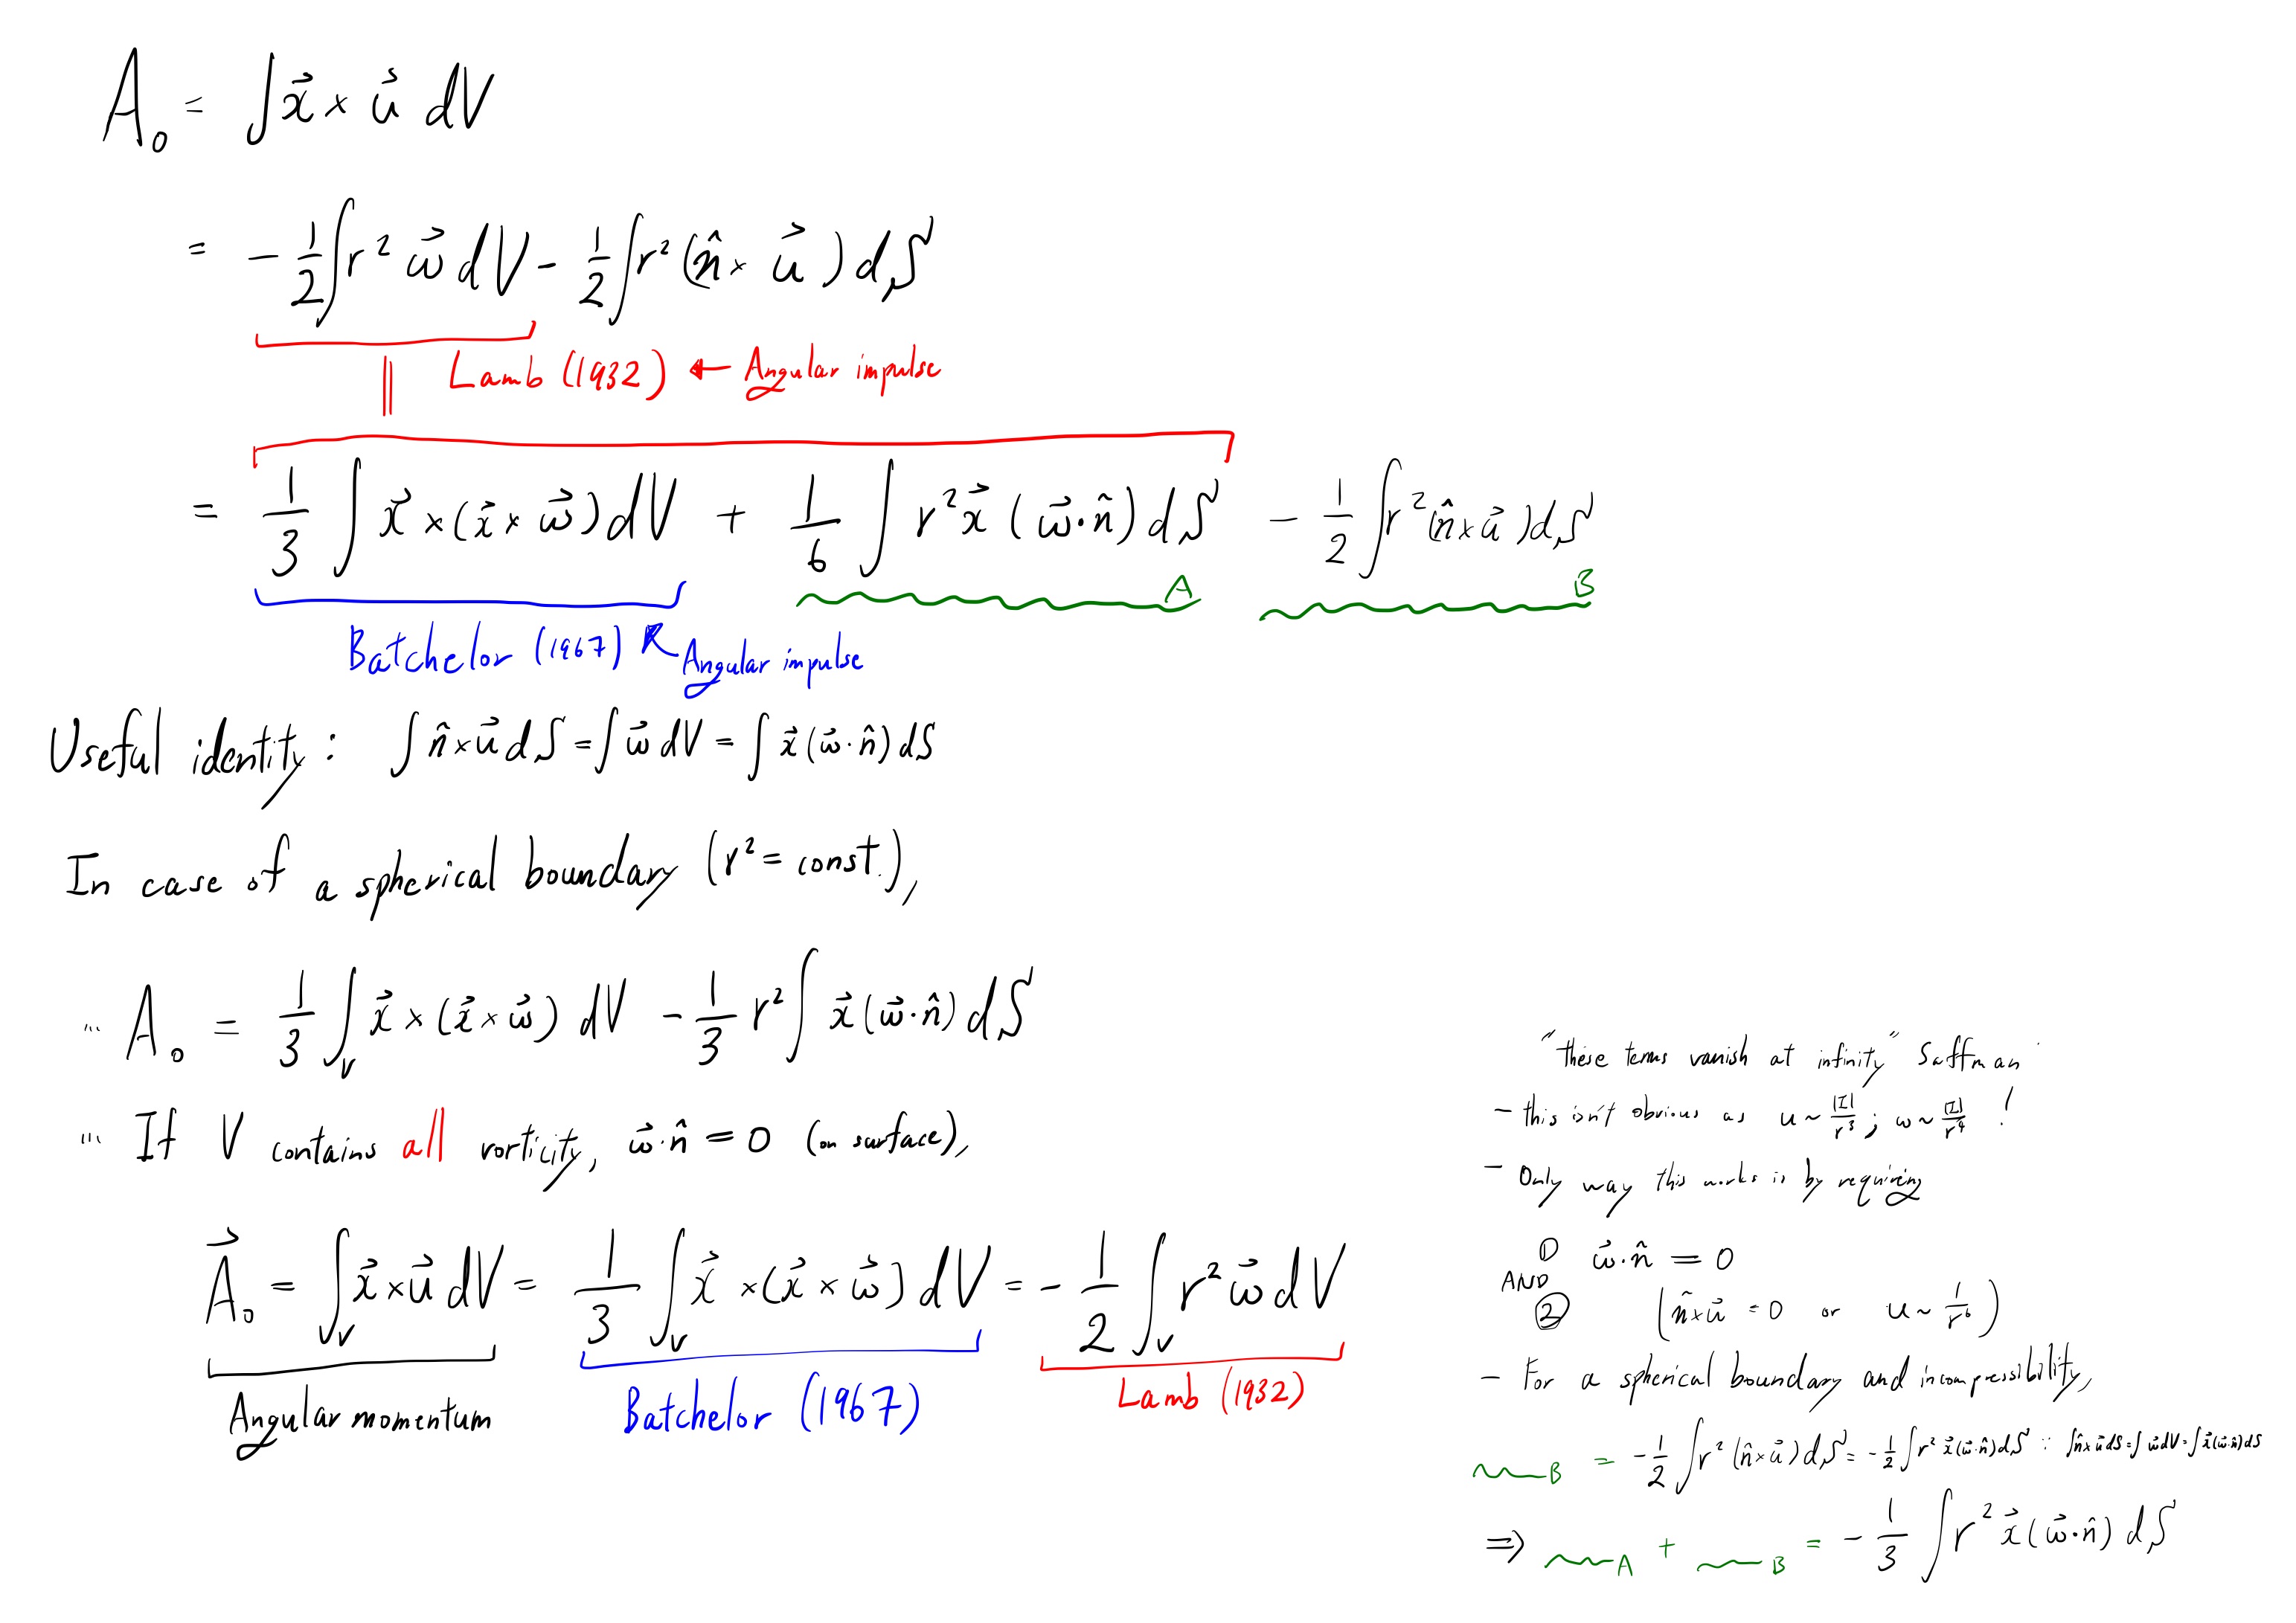 A₀ = ∫ x⃗ × u⃗ dV
= - 1/2 ∫ r² ω⃗ dV - 1/2 ∫ r² (n̂ × u⃗) dS
|| Lamb (1932) ← Angular impulse
= 1/3 ∫ x⃗ × (x⃗ × ω⃗) dV + 1/6 ∫ r² x⃗ (ω⃗ · n̂) dS - 1/2 ∫ r² (n̂ × u⃗) dS
A B
Batchelor (1967) ↖ Angular impulse
Useful identity : ∫ n̂ × u⃗ dS = ∫ ω⃗ dV = ∫ x⃗ (ω⃗ · n̂) dS
In case of a spherical boundary (r² = const.),
... A₀ = 1/3 ∫_V x⃗ × (x⃗ × ω⃗) dV - 1/3 r² ∫ x⃗ (ω⃗ · n̂) dS
... If V contains all vorticity, ω⃗ · n̂ = 0 (on surface),
A⃗₀ = ∫_V x⃗ × u⃗ dV = 1/3 ∫_V x⃗ × (x⃗ × ω⃗) dV = - 1/2 ∫_V r² ω⃗ dV
Angular momentum Batchelor (1967) Lamb (1932)
"These terms vanish at infinity" Saffman
- this isn't obvious as u ~ |I|/r³ ; ω ~ |I|/r⁴ !
- Only way this works is by requiring
① ω⃗ · n̂ = 0
AND
② (n̂ × u⃗ = 0 or u ~ 1/r⁶)
- For a spherical boundary and incompressibility,
B = - 1/2 ∫ r² (n̂ × u⃗) dS = - 1/2 ∫ r² x⃗ (ω⃗ · n̂) dS ∵ ∫ n̂ × u⃗ dS = ∫ ω⃗ dV = ∫ x⃗ (ω⃗ · n̂) dS
⇒ A + B = - 1/3 ∫ r² x⃗ (ω⃗ · n̂) dS